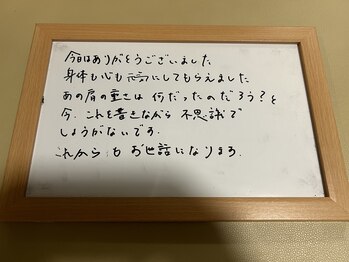 今日はありがとうございました
身体も心も元気にしてもらえました
あの肩の重さは 何だったのだろう？と
今、これを書きながら 不思議で
しょうがないです。
これからも お世話になります。